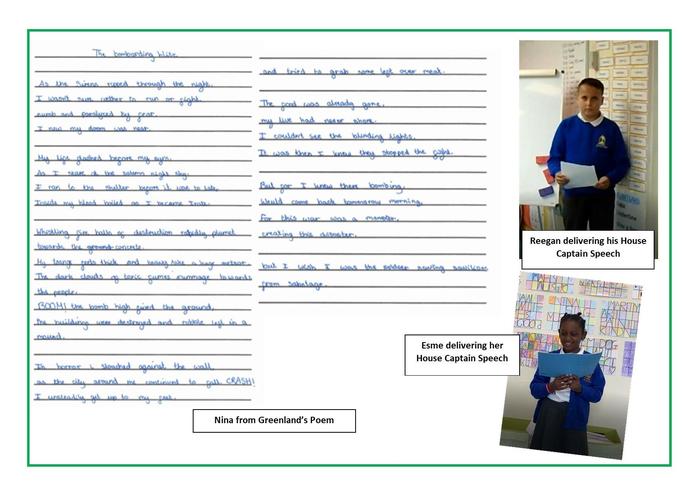 The bombarding blitz
As the Sirens ripped through the night.
I wasn't sure wether to run or fight.
numb and paralyzed by fear.
I new my doom was near.
My life flashed before my eyes.
As I at the solemn night sky.
I ran to the shelter before it was to late.
Inside my blood boiled as I became Irate.
Whistling fire balls of destruction rapidly plumet
towards the ground concrete.
My lungs thick and heavy like a huge meteor
The dark clouds of toxic fumes rummage towards
the people.
BOOM! the bomb had the ground,
the buildings were destroyed and rubble left in a
mound.
In horror I slouched against the wall
as the city around me continued to fall. CRASH!
I unsteadily get up to my feet.
and tried to grab some left over meat.
The food was already gone,
my live had never shone.
I couldn't see the blinding lights.
It was then I knew they stopped the fight.
But for I knew there bombing,
Would come back tomorrow morning,
For this war was a monster,
creating this disaster.
but I wish I was the soldier saving
from sabotage.
Nina from Greenland's Poem
Reegan delivering his House
Captain Speech
Esme delivering her
House Captain Speech